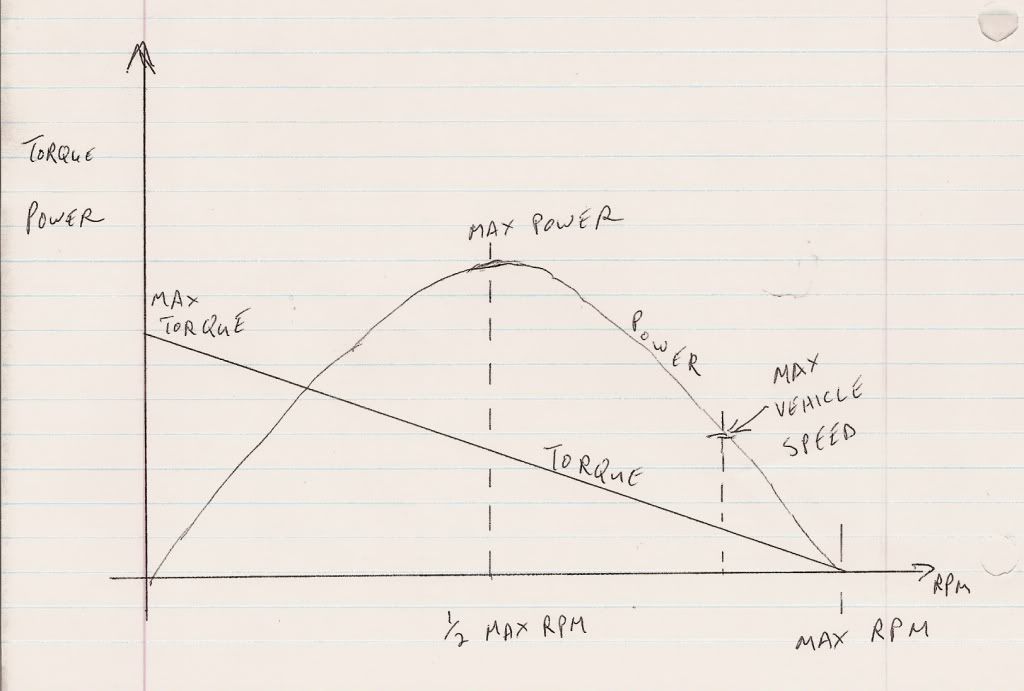 TORQUE
POWER
MAX POWER
MAX
TORQUE
POWER
MAX
VEHICLE
SPEED
TORQUE
RPM
1/2 MAX RPM
MAX RPM